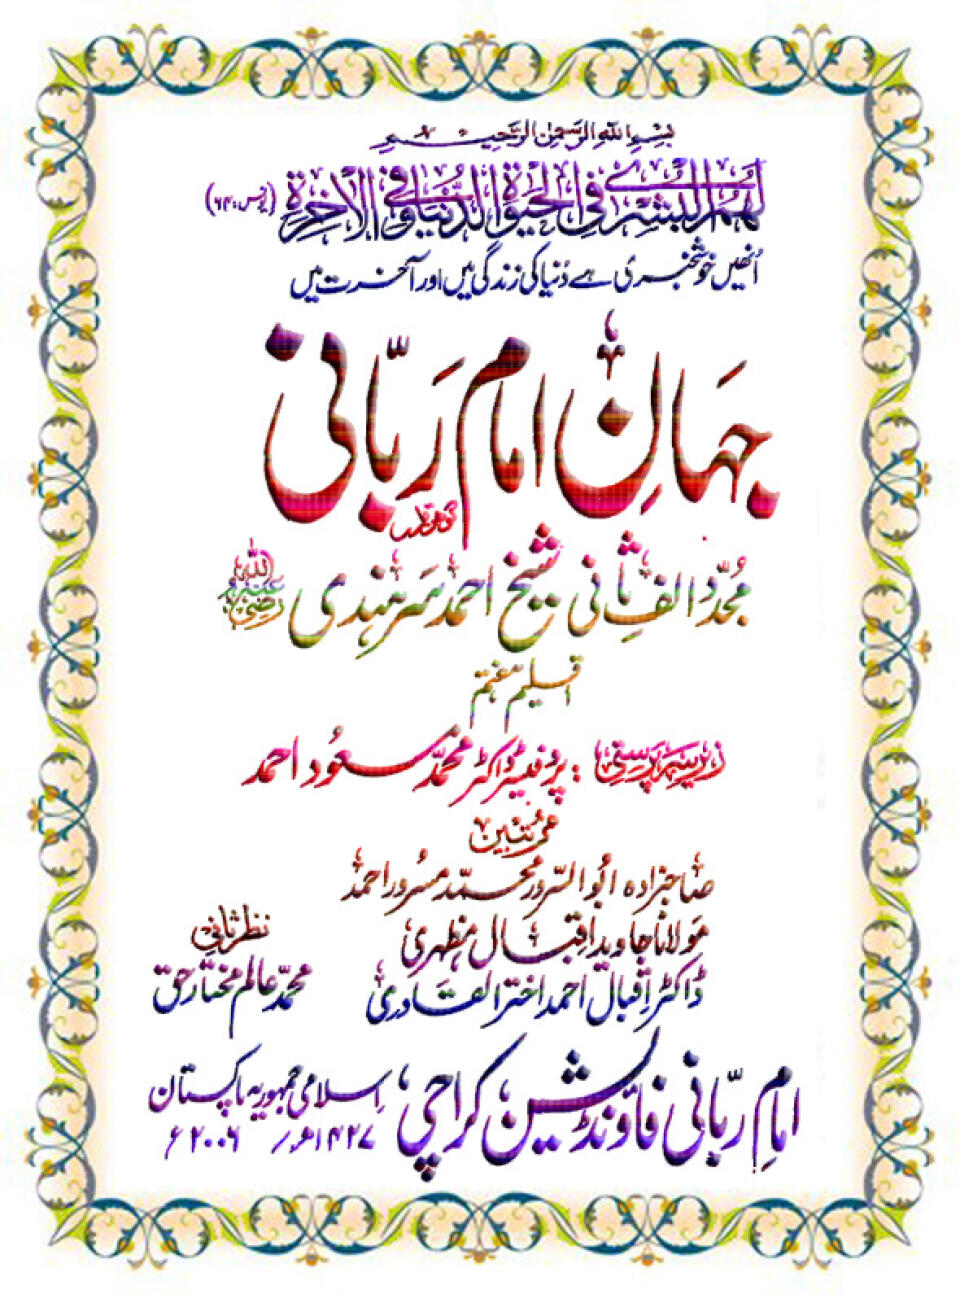 بسم اللہ الرحمٰن الرحیم
لَهُمُ الْبُشْرٰى فِى الْحَيٰوةِ الدُّنْيَا وَفِى الْاٰخِرَةِ (یونس:۶۴)
اُنھیں خوشخبری ہے دُنیا کی زندگی میں اور آخرت میں
جہانِ امام رَبّانی
مُجدّد الفِ ثانی شیخ احمد سَرہندی رضی اللہ عنہ
اقلیم ہفتم
زیرِ سرپرستی : پروفیسر ڈاکٹر محمد مسعُود احمد
مرتبین
صاحبزادہ ابُوالسّرور محمّد مسرُور احمد
مولانا جاوید اقبال مظہری
ڈاکٹر اقبال احمد اختر القادری
نظرثانی
محمّد عالم مختارِ حق
امامِ ربّانی فاؤنڈیشن، کراچی،
اِسلامی جمہوریہ پاکستان
۱۴۲۷ھ / ۲۰۰۶ء